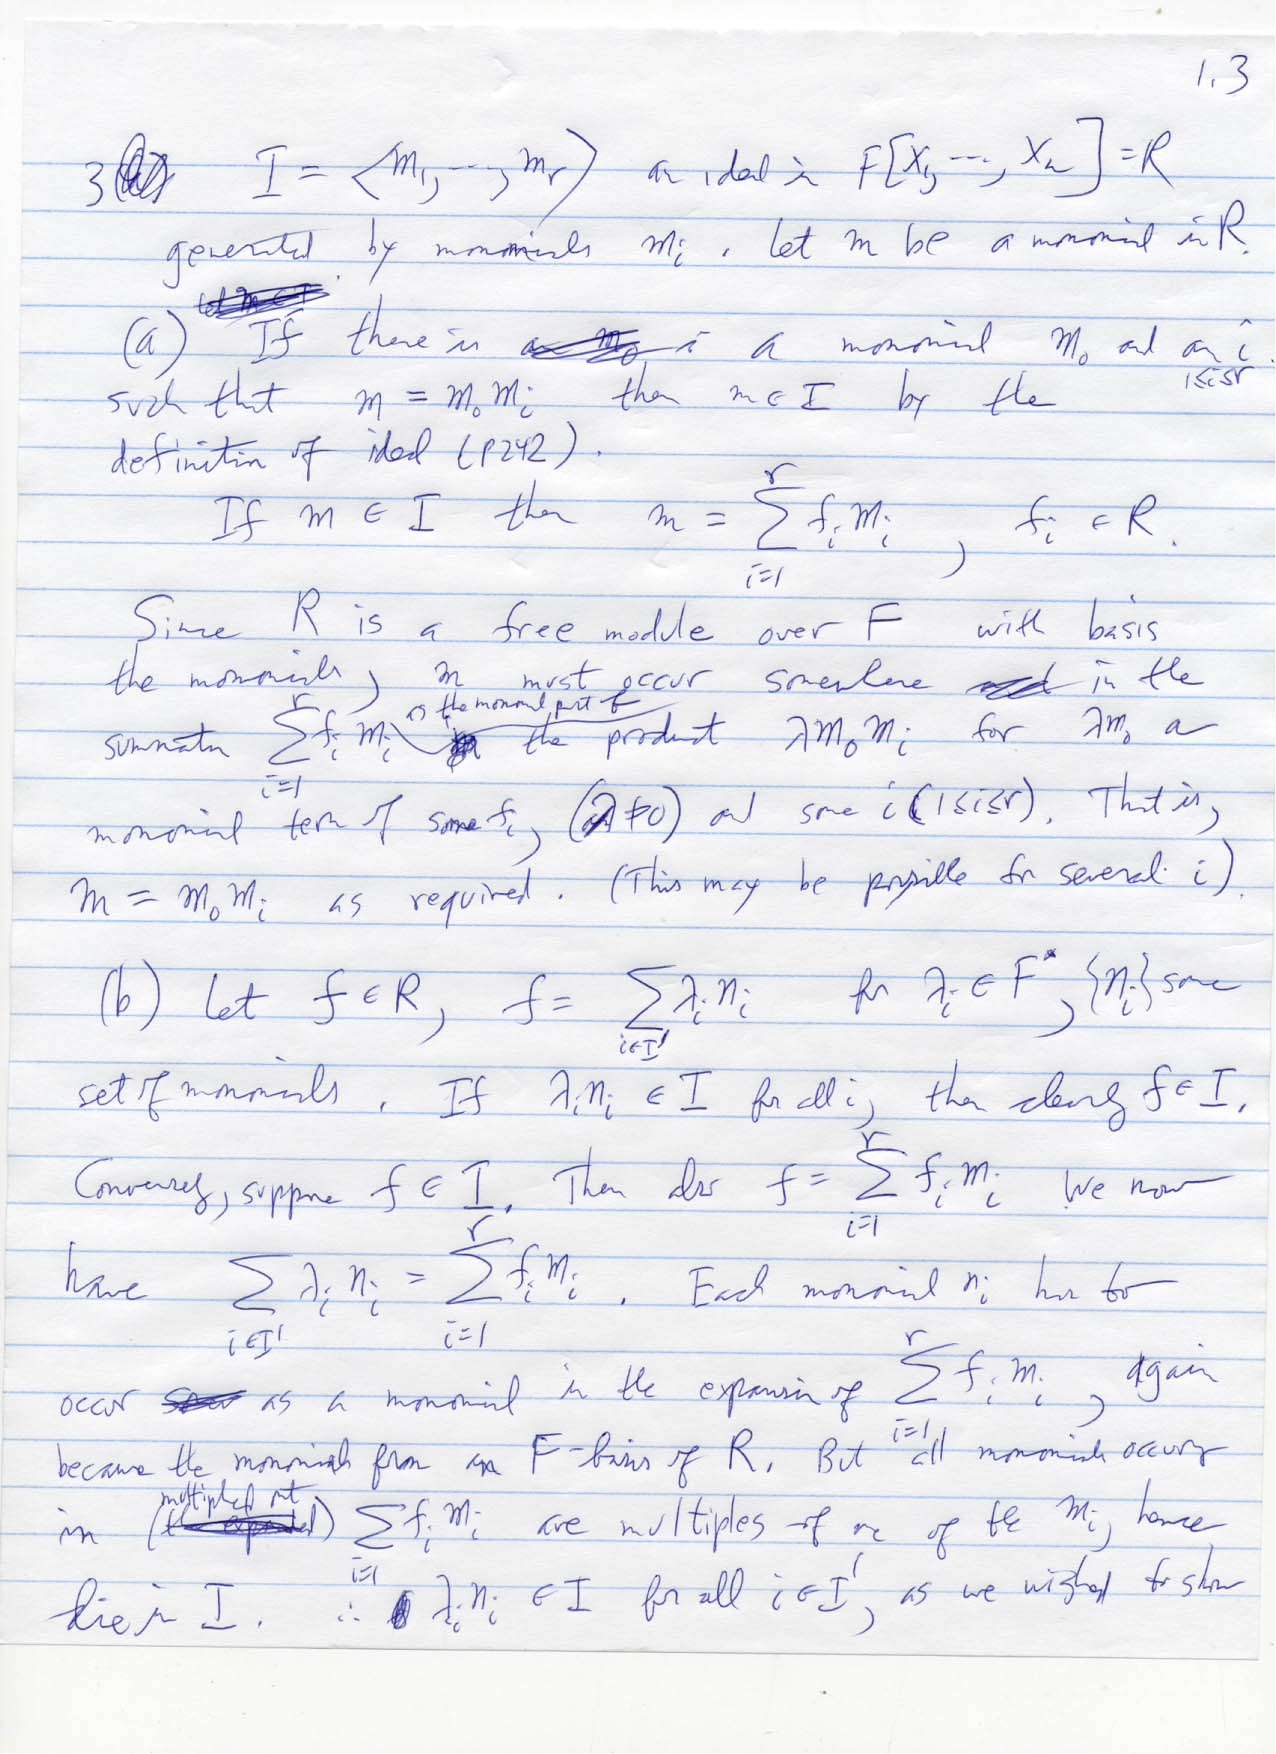 1.3
3 I = <m₁, ..., mᵣ> an ideal in F[x₁, ..., xₙ] = R
generated by monomials mᵢ. Let m be a monomial in R.
(a) If there is a monomial m₀ and an i 1≤i≤r
such that m = m₀mᵢ then m ∈ I by the
definition of ideal (p242).
If m ∈ I then m = ∑ᵢ₌₁ʳ fᵢmᵢ, fᵢ ∈ R.
Since R is a free module over F with basis
the monomials, m must occur somewhere in the
summation ∑ᵢ₌₁ʳ fᵢmᵢ as the monomial part of the product λm₀mᵢ for λm₀ a
monomial term of some fᵢ, (λ≠0) and some i (1≤i≤r). That is,
m = m₀mᵢ as required. (This may be possible for several i).
(b) Let f ∈ R, f = ∑_{i∈I'} λᵢnᵢ for λᵢ ∈ F*, {nᵢ} some
set of monomials. If λᵢnᵢ ∈ I for all i, then clearly f ∈ I.
Conversely, suppose f ∈ I. Then also f = ∑ᵢ₌₁ʳ fᵢmᵢ We now
have ∑_{i∈I'} λᵢnᵢ = ∑ᵢ₌₁ʳ fᵢmᵢ. Each monomial nᵢ has to
occur as a monomial in the expansion of ∑ᵢ₌₁ʳ fᵢmᵢ, again
because the monomials from an F-basis of R. But all monomials occurring
in (multiplied out) ∑ᵢ₌₁ fᵢmᵢ are multiples of one of the mᵢ, hence
lie in I. ∴ λᵢnᵢ ∈ I for all i ∈ I', as we wished to show